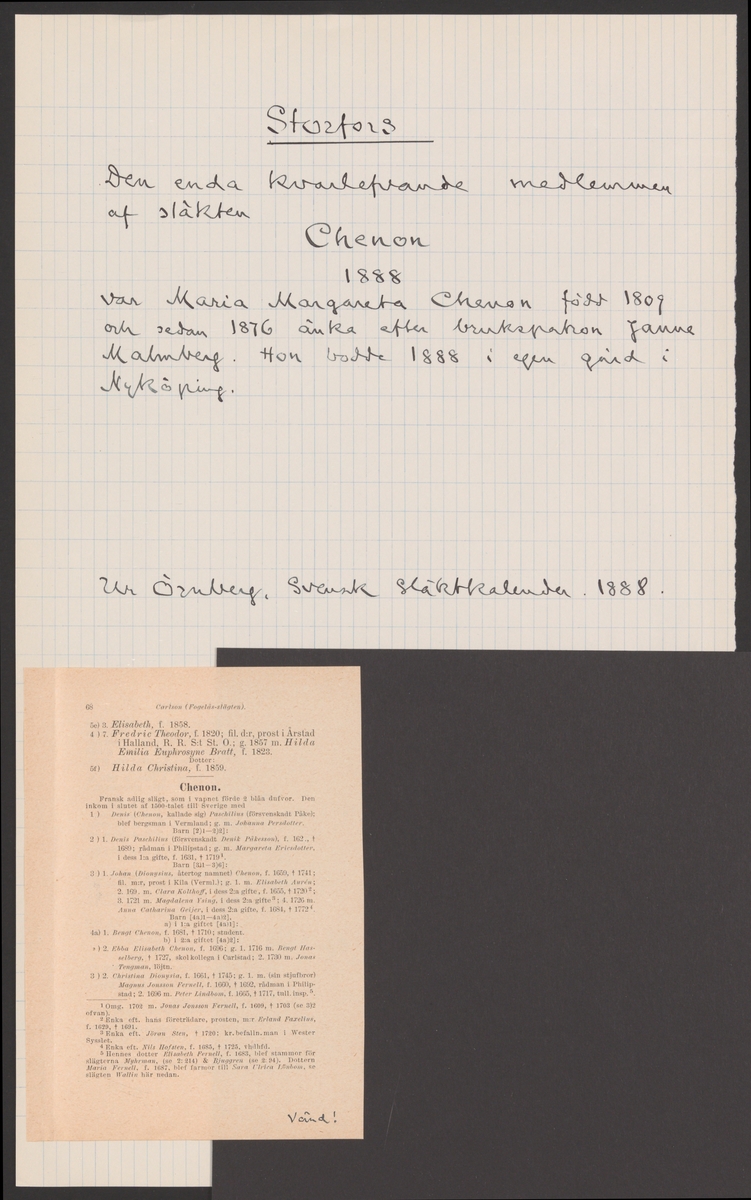 Storfors
Den enda kvarlefvande medlemmen
af släkten
Chenon
1888
var Maria Margareta Chenon född 1809
och sedan 1876 änka efter brukspatron Janne
Malmberg. Hon bodde 1888 i egen gård i
Nyköping.
Ur Örnberg, Svensk Släktkalender. 1888.
68 Carlson (Fogelås-slägten).
5e) 3. Elisabeth, f. 1858.
4 ) 7. Fredric Theodor, f. 1820; fil. d:r, prost i Årstad
i Halland, R. R. S:t St. O.; g. 1857 m. Hilda
Emilia Euphrosyne Bratt, f. 1823.
Dotter:
5f) Hilda Christina, f. 1859.
Chenon.
Fransk adlig slägt, som i vapnet förde 2 blåa dufvor. Den
inkom i slutet af 1500-talet till Sverige med
1 ) Denis (Chenon, kallade sig) Paschilius (försvenskadt Påke);
blef bergsman i Vermland; g. m. Johanna Persdotter.
Barn [2)1—2)2]:
2 ) 1. Denis Paschilius (försvenskadt Denik Påkesson), f. 162., †
1689; rådman i Philipstad; g. m. Margareta Ericsdotter,
i dess 1:a gifte, f. 1631, † 1719¹.
Barn [3)1—3)6]:
3 ) 1. Johan (Dionysius, återtog namnet) Chenon, f. 1659, † 1741;
fil. m:r, prost i Kila (Verml.); g. 1. m. Elisabeth Aurén;
2. 169. m. Clara Kolthoff, i dess 2:a gifte, f. 1655, † 1720²;
3. 1721 m. Magdalena Ysing, i dess 2:a gifte³; 4. 1726 m.
Anna Catharina Geijer, i dess 2:a gifte, f. 1684, † 1772⁴.
Barn [4a)1—4a)2],
a) i 1:a giftet [4a)1]:
4a) 1. Bengt Chenon, f. 1681, † 1710; student.
b) i 2:a giftet [4a)2]:
») 2. Ebba Elisabeth Chenon, f. 1696; g. 1. 1716 m. Bengt Has-
selberg, † 1727, skolkollega i Carlstad; 2. 1730 m. Jonas
Tengman, löjtn.
3 ) 2. Christina Dionysia, f. 1661, † 1745; g. 1. m. (sin stjufbror)
Magnus Jonsson Fernell, f. 1660, † 1692, rådman i Philip-
stad; 2. 1696 m. Peter Lindbom, f. 1665, † 1717, tull. insp.⁵.
¹ Omg. 1702 m. Jonas Jonsson Fernell, f. 1609, † 1703 (se 3)2
ofvan).
² Enka eft. hans företrädare, prosten, m:r Erland Faxelius,
f. 1629, † 1691.
³ Enka eft. Jöran Sten, † 1720; kr. befalln. man i Wester
Sysslet.
⁴ Enka eft. Nils Hafsten, f. 1685, † 1725,
⁵ Hennes dotter Elisabeth Fernell, f. 1683, blef stammor för
slägterna Myhrman, (se 2: 214) & Kjuggren (se 2: 24). Dottern
Maria Fernell, f. 1687, blef farmor till Sara Chrira Lönbom, se
slägten Wallin här nedan.
Vänd!